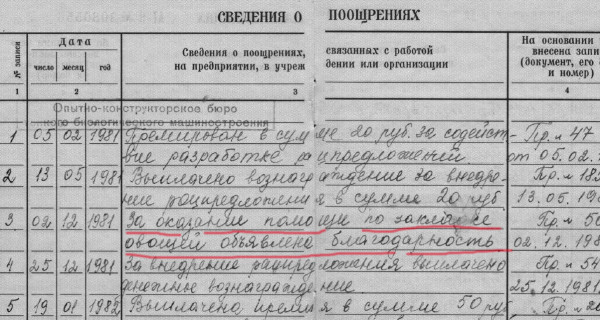 СВЕДЕНИЯ О ПООЩРЕНИЯХ
№ записи
Дата
число месяц год
Сведения о поощрениях, связанных с работой
на предприятии, в учреж дении или организации
На основании
внесена запи
(документ, его
и номер)
1 2 3 4
Опытно-конструкторское бюро
биологического машиностроения
1 05 02 1981 Премирован в сумме 20 руб. за содейст- Пр. № 47
вие разработке рацпредложений. от 05.02.
2 13 05 1981 Выплачено вознаграждение за внедре- Пр. № 182
ние рацпредложения в сумме 20 руб 13.05.198
3 02 12 1981 За оказание помощи по закладке Пр. № 50
овощей объявлена благодарность 02.12.198
4 25 12 1981 За внедрение рацпредложения выплачено Пр. № 54
денежное вознаграждение 25.12.1981
5 19 01 1982 Выплачена премия в сумме 50 руб